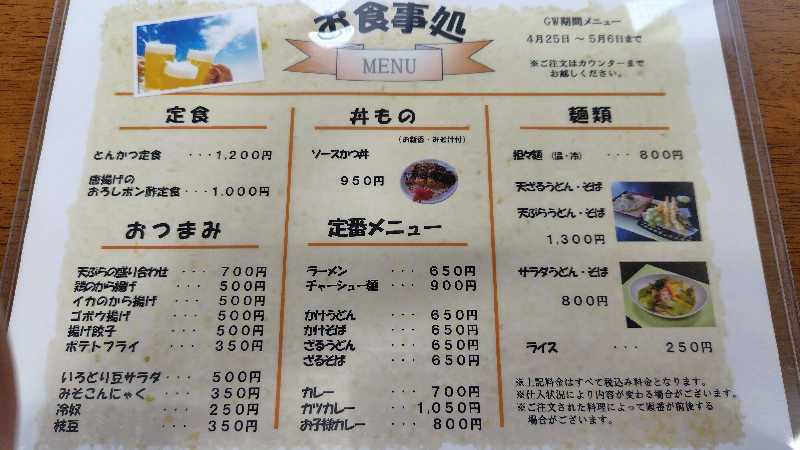 お食事処
MENU
GW期間メニュー
4月25日 ～ 5月6日まで
※ご注文はカウンターまで
お越しください。
定食
とんかつ定食 ･･･1,200円
唐揚げの
おろしポン酢定食･･･1,000円
おつまみ
天ぷらの盛り合わせ ･･･ 700円
鶏のから揚げ ･･･ 500円
イカのから揚げ ･･･ 500円
ゴボウ揚げ ･･･ 500円
揚げ餃子 ･･･ 500円
ポテトフライ ･･･ 350円
いろどり豆サラダ ･･･ 500円
みそこんにゃく ･･･ 350円
冷奴 ･･･ 250円
枝豆 ･･･ 350円
丼もの
（お新香・みそ汁付）
ソースかつ丼
950円
定番メニュー
ラーメン ･･･ 650円
チャーシュー麺 ･･･ 900円
かけうどん ･･･ 650円
かけそば ･･･ 650円
ざるうどん ･･･ 650円
ざるそば ･･･ 650円
カレー ･･･ 700円
カツカレー ･･･ 1,050円
お子様カレー ･･･ 800円
麺類
担々麺（温・冷） ･･･ 800円
天ざるうどん・そば
天ぷらうどん・そば
1,300円
サラダうどん・そば
800円
ライス ･･･ 250円
※上記料金はすべて税込み料金となります。
※仕入状況により内容が変わる場合がございます。
※ご注文された料理によって順番が前後する
場合がございます。